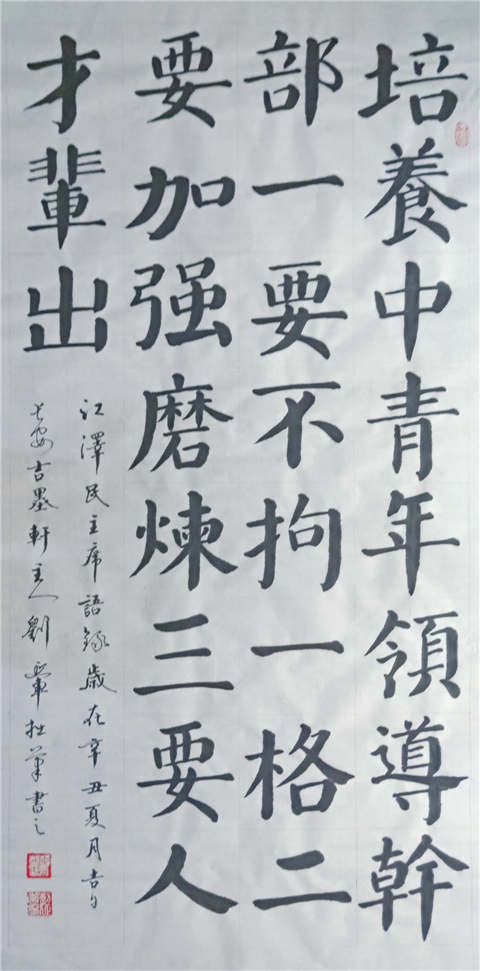 培養中青年領導幹
部一要不拘一格二
要加强磨煉三要人
才輩出
江澤民主席語錄歲在辛丑夏月吉日
長安古墨軒主人劉軍拙筆書之